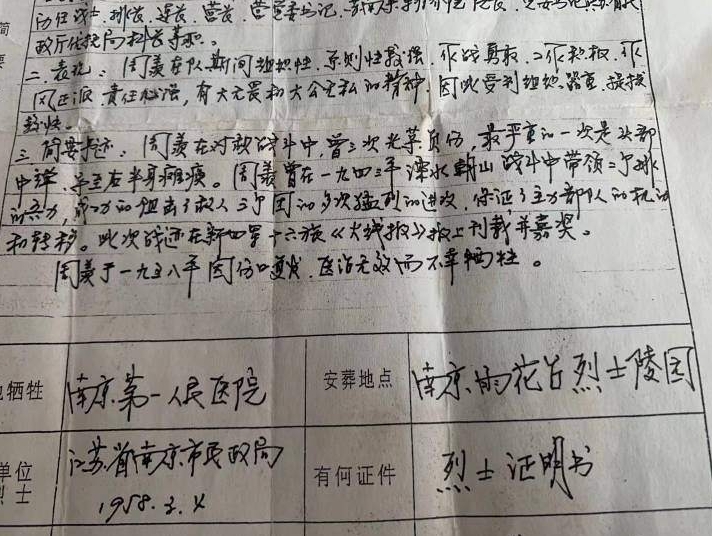 历任战士、排长、连长、营长、营党委书记、
简
政厅优抚局科长等职。
要
二、表现：周羡在部队期间组织性、原则性较强，作战勇敢，工作积极，作
风正派，责任心强，有大无畏和大公无私的精神，因此受到组织器重，提拔
较快。
三、简要事迹：周羡在对敌战斗中，曾三次光荣负伤，最严重的一次是头部
中弹，导至右半身瘫痪。周羡曾在一九四三年溧水 山战斗中带领二个排
的兵力，成功的阻击了敌人三个团的多次猛烈的进攻，保证了主力部队的机动
和转移。此次战迹在新四军十六旅《火线报》报上刊载并嘉奖。
周羡于一九五八年因伤口复发，医治无效而不幸牺牲。
地牺牲 南京第一人民医院 安葬地点 南京雨花台烈士陵园
单位 江苏省南京市民政局 有何证件 烈士证明书
烈士 1958.3.4